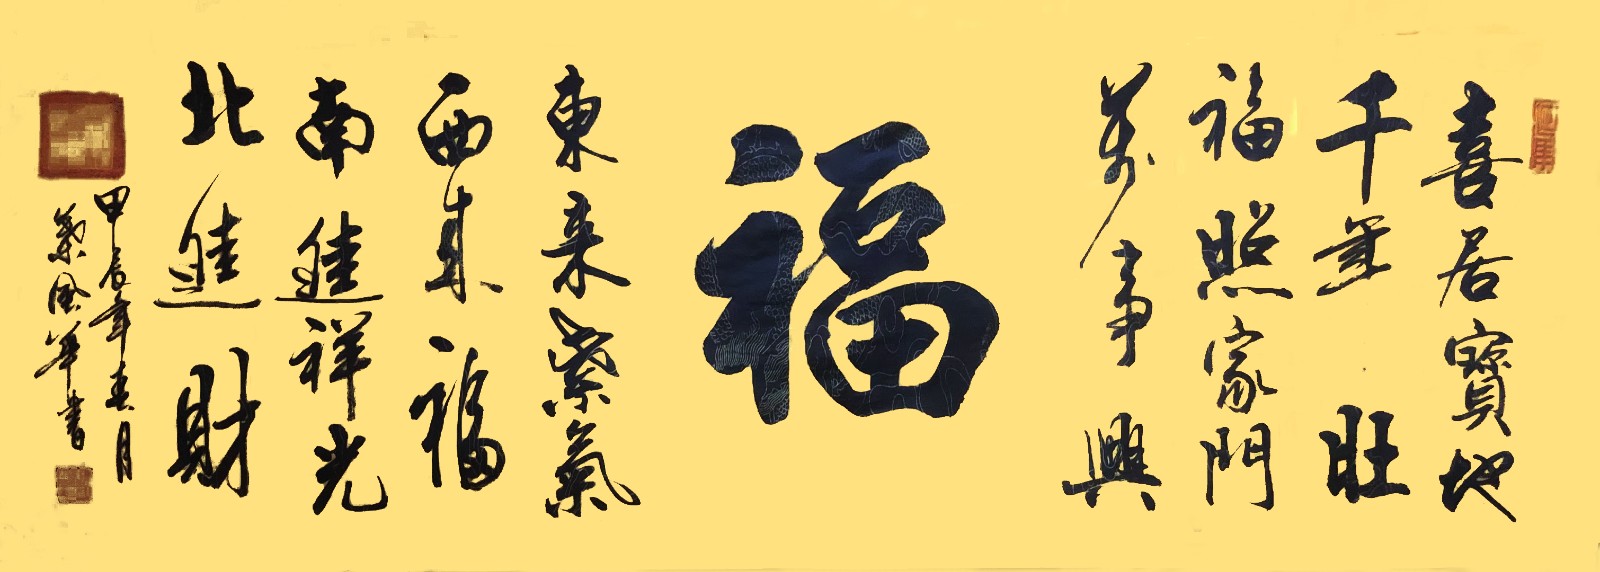 喜居寶地
千年旺
福照家門
萬事興
福
東来紫氣
西来福
南進祥光
北進財
甲辰年春月
書